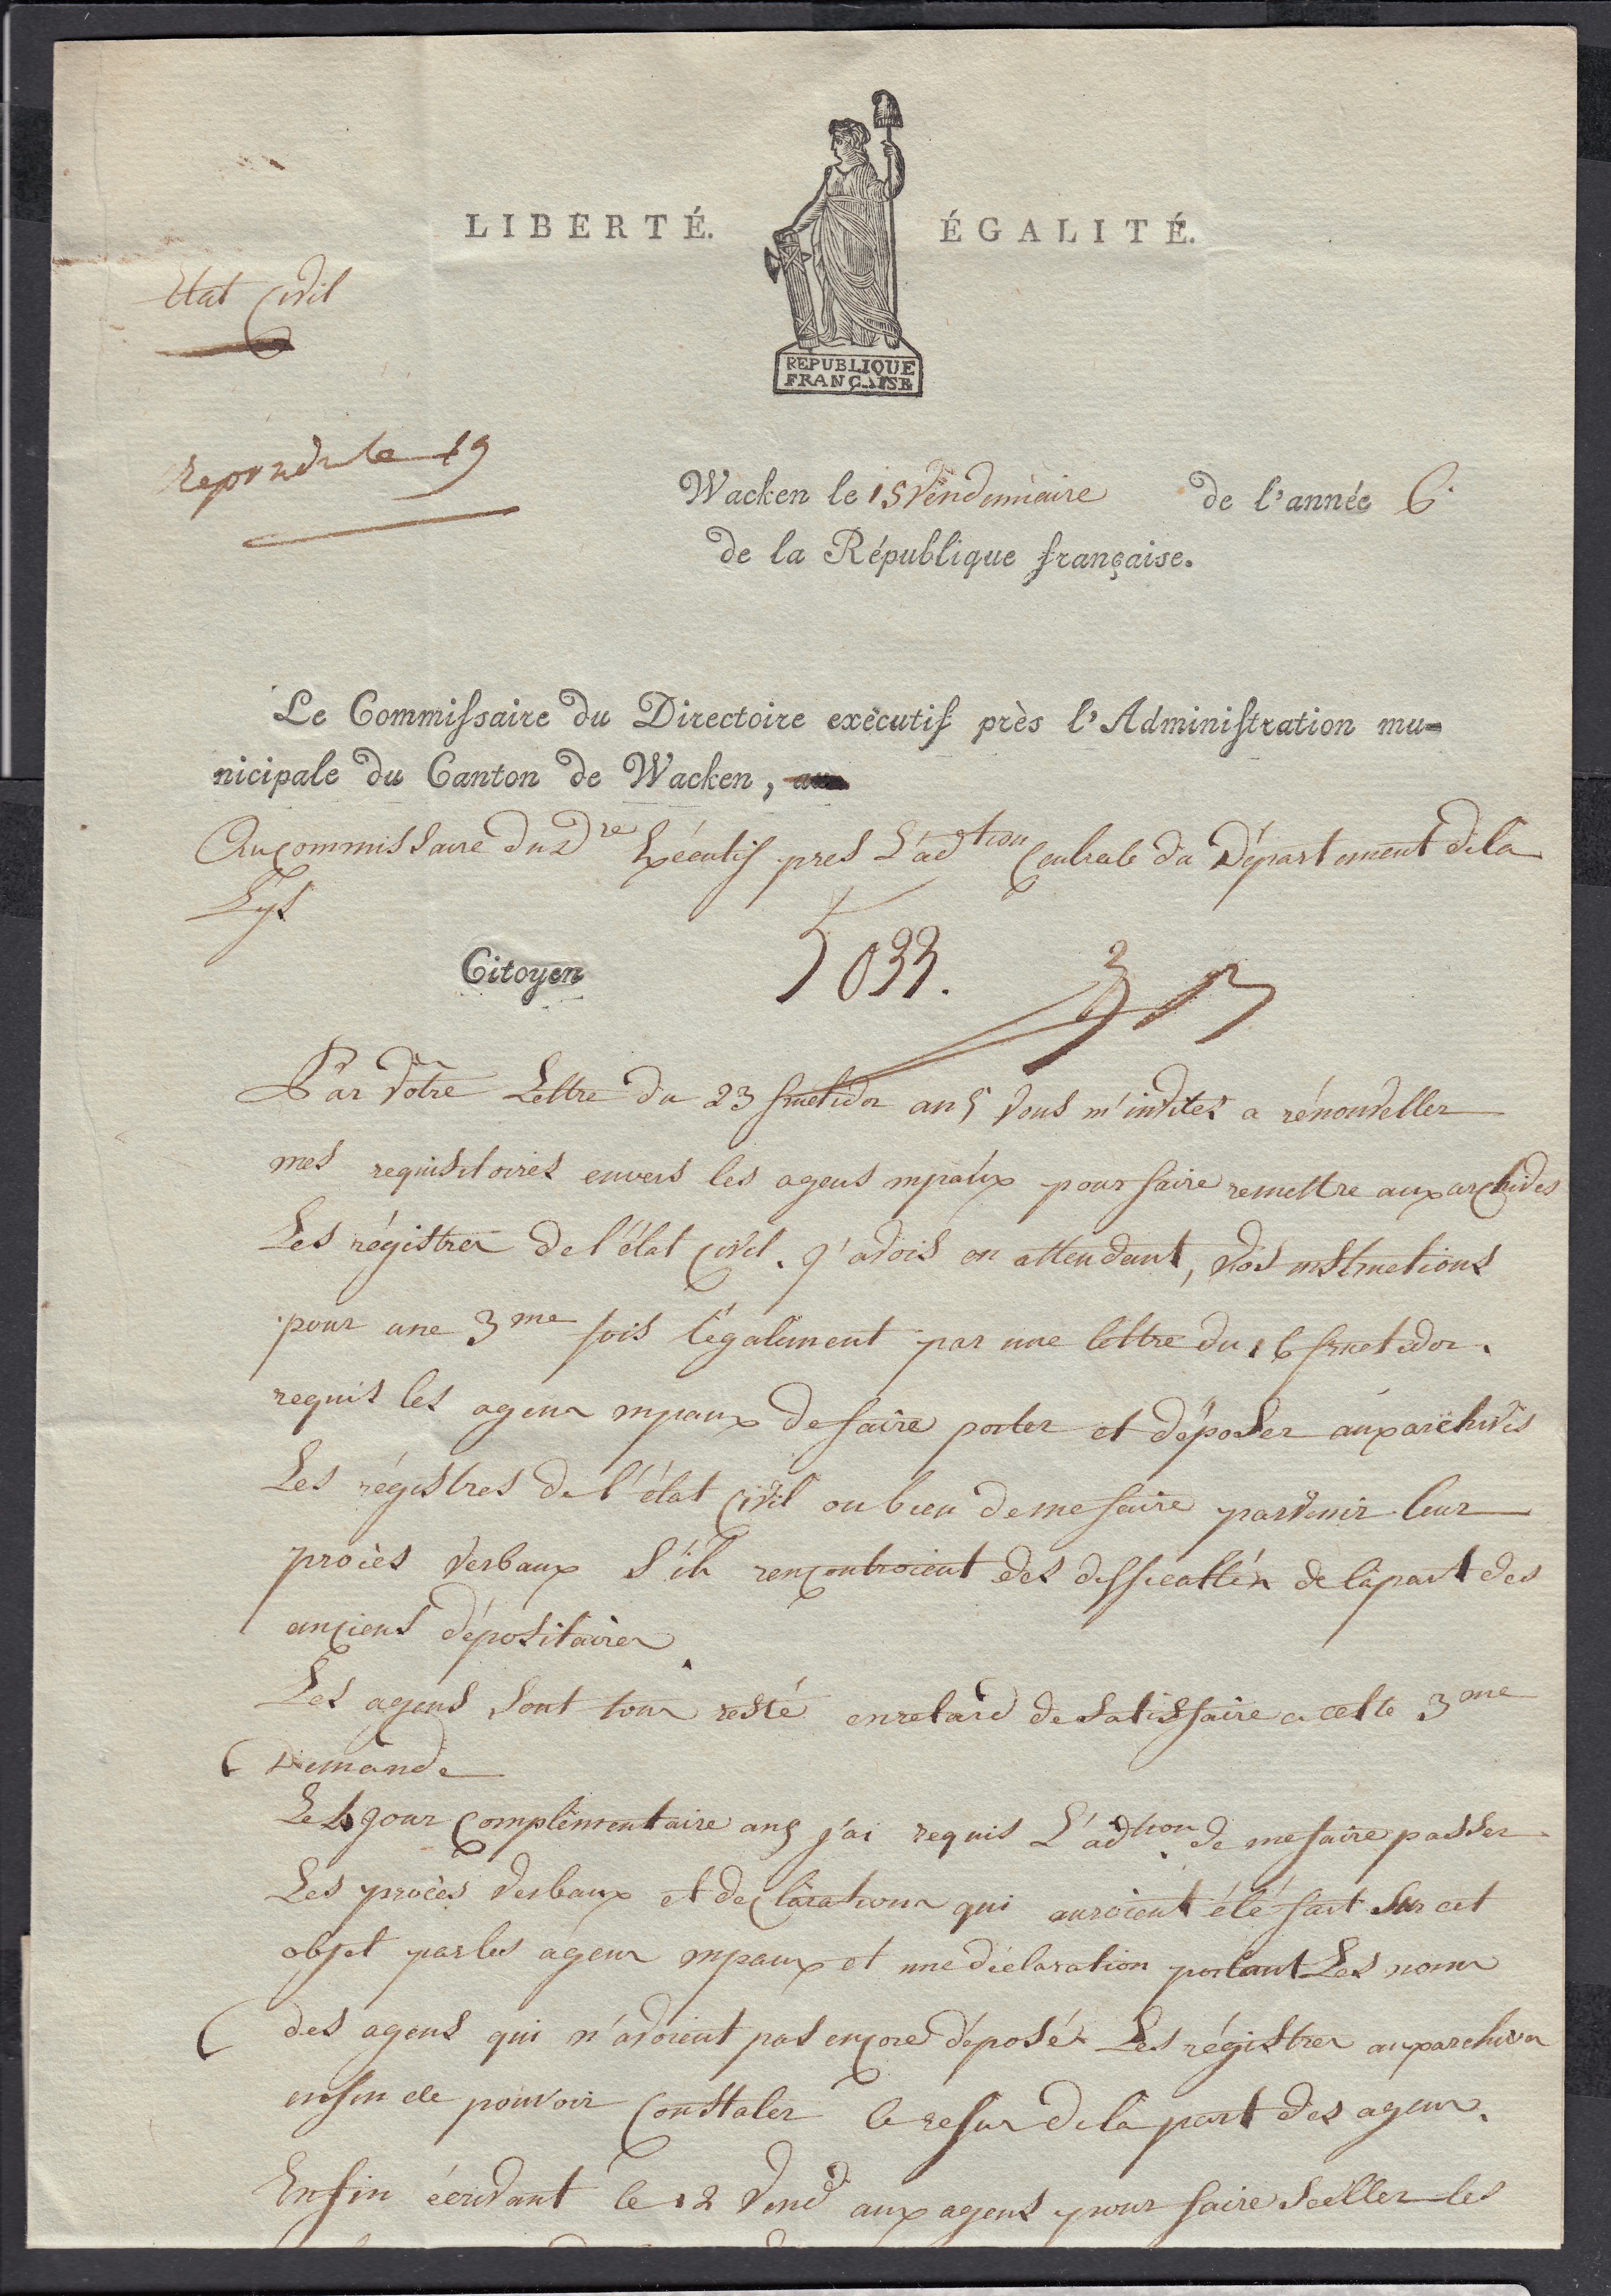 LIBERTÉ. ÉGALITÉ.
REPUBLIQUE
FRANÇAISE
Etat Civil
repondu le 19
Wacken le 15 Vendemiaire de l'année 6.
de la République française.
Le Commissaire du Directoire exécutif près l'Administration mu-
nicipale du Canton de Wacken,
Au commissaire du Dre Exécutif pres L'adtion Centrale du Département de la
Lys
Citoyen
5033.
Par Votre Lettre du 23 fructidor an 5 Vous m'invitez a rénouveller
mes requisitoires envers les agens mpaux pour faire remettre aux archives
Les régistres de l'état Civil. J'avois en attendant, Vos instructions
pour une 3me fois légalement par une lettre du 16 fructidor.
requis les agens mpaux de faire porter et déposer aux archives
Les régistres de l'état Civil ou bien de me faire parvenir leur
procès verbaux S'ils rencontroient des difficultés de la part des
anciens dépositaires
Les agens sont tous resté en retard de satisfaire a cette 3me
Demande
Le jour Complémentaire an 5 j'ai requis L'adtion de me faire passer
Les procès verbaux et déclarations qui auroient été fait Sur cet
objet par les agens mpaux et une déclaration portant Les noms
des agens qui n'avoient pas encore déposé Les régistres aux archives
enfin de pouvoir Constater le refus de la part des agens.
Enfin écrivant le 12 Vendre aux agens pour faire Sceller les